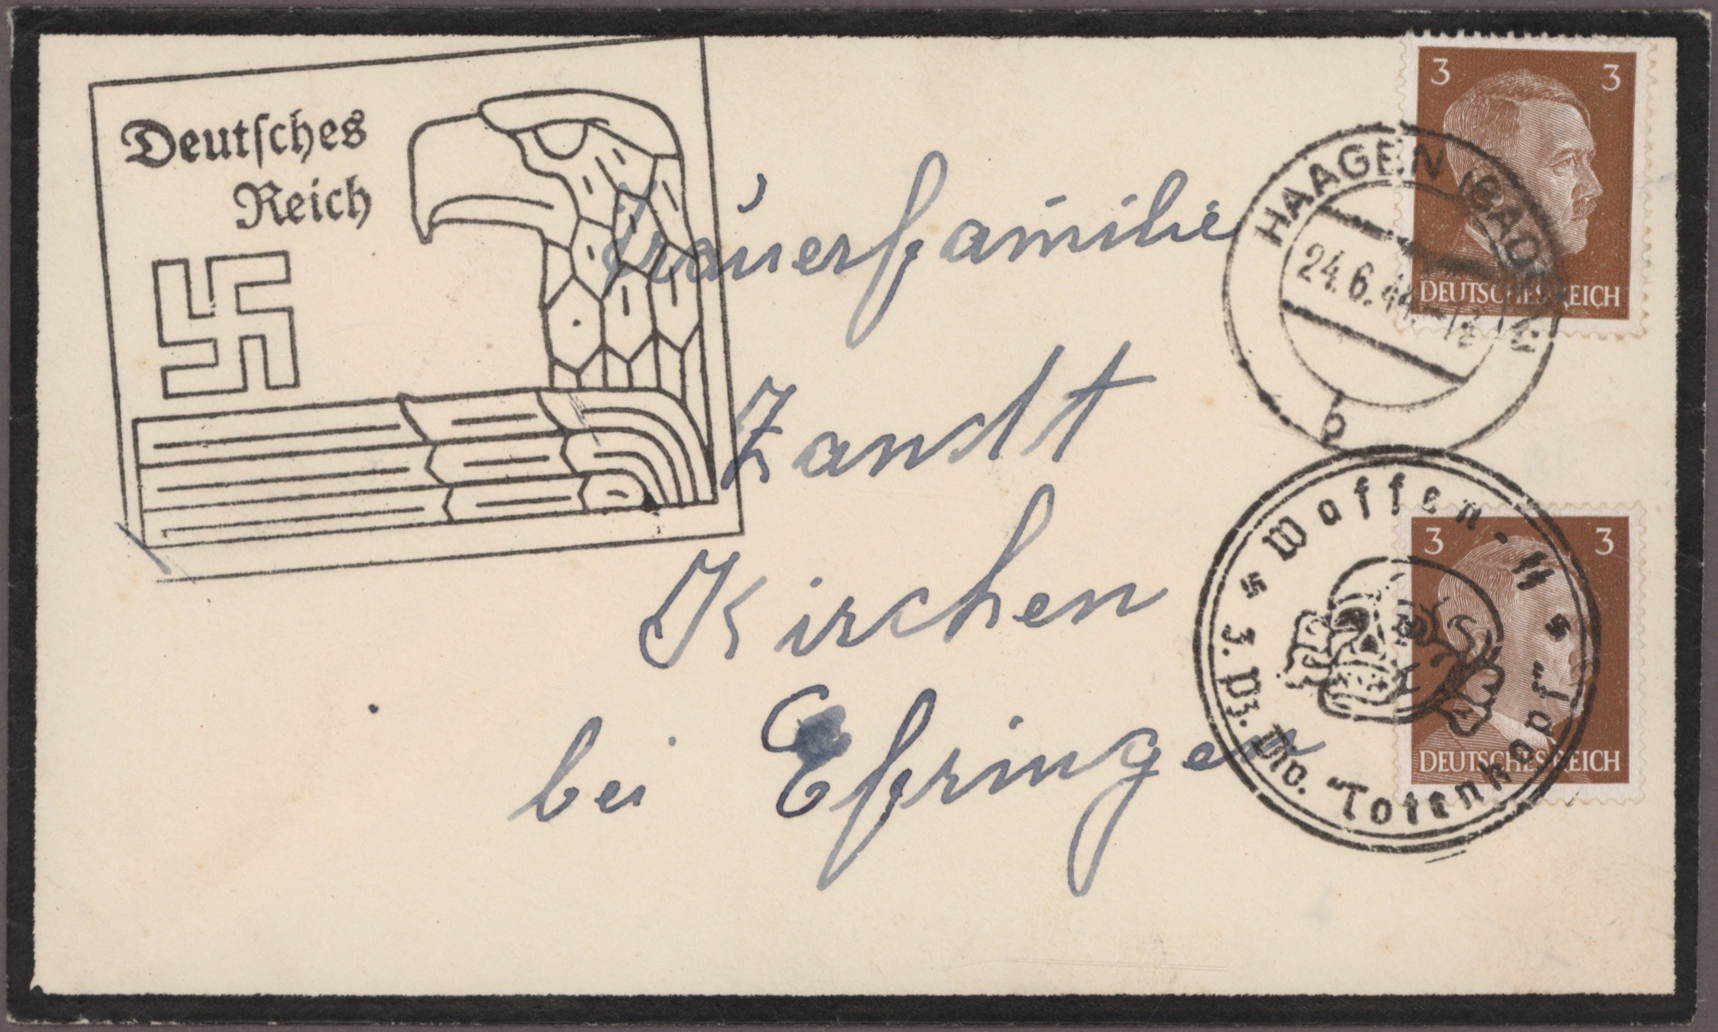 Deutsches
Reich
3 3
DEUTSCHES REICH
HAAGEN (BADEN)
24.6.44
b
Trauerfamilie
Zandt
Kirchen
bei Efringen
3 3
DEUTSCHES REICH
Waffen-SS
3. Pz. Div. "Totenkopf"